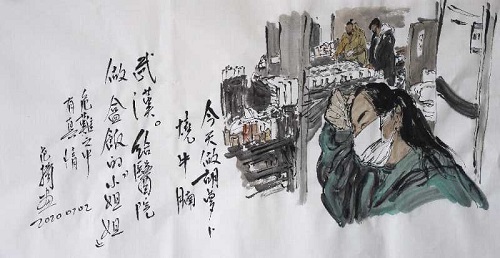 今天做胡萝卜
燒牛腩
武漢。給醫院
做盒飯的"小姐姐"
危難之中
有真情